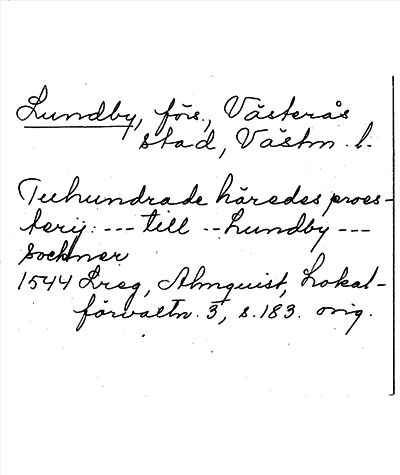 Lundby, förs., Västerås
stad, Västm. l.
Tuhundrade häredes proes-
terij: --- till -- Lundby ---
Sochner
1544 Lreg, Almquist, Lokal-
förvaltn. 3, s. 183. orig.